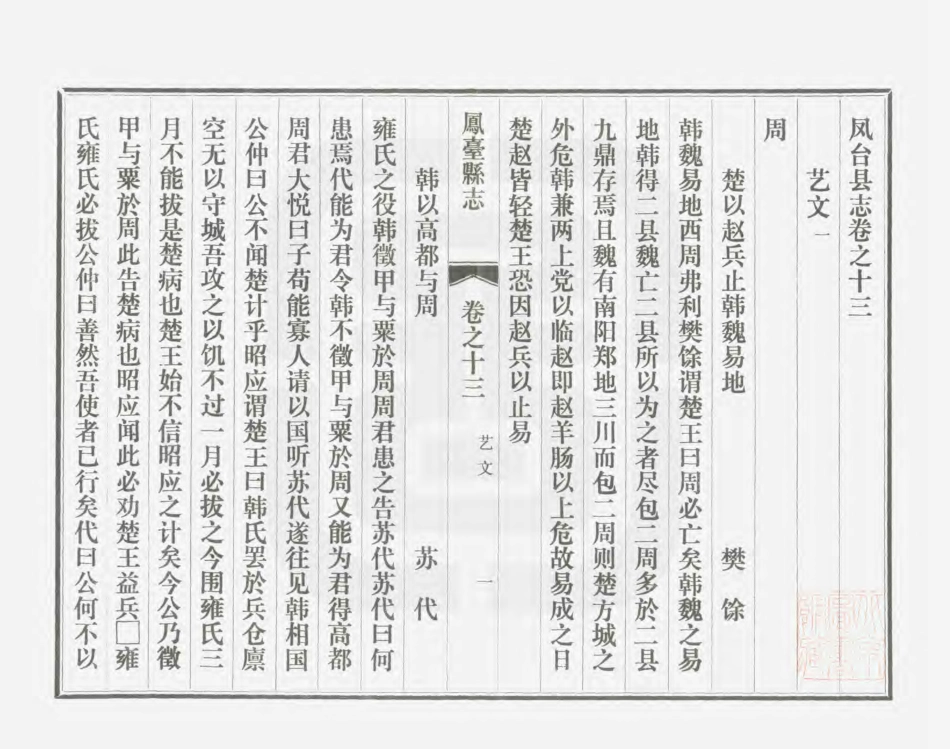 凤台县志卷之十三
艺文一
周
楚以赵兵止韩魏易地 樊馀
韩魏易地西周弗利樊馀谓楚王曰周必亡矣韩魏之易
地韩得二县魏亡二县所以为之者尽包二周多於二县
九鼎存焉且魏有南阳郑地三川而包二周则楚方城之
外危韩兼两上党以临赵即赵羊肠以上危故易成之日
楚赵皆轻楚王恐因赵兵以止易
鳳臺縣志 卷之十三 艺文 一
韩以高都与周 苏代
雍氏之役韩徵甲与粟於周周君患之告苏代苏代曰何
患焉代能为君令韩不徵甲与粟於周又能为君得高都
周君大悦曰子苟能寡人请以国听苏代遂往见韩相国
公仲曰公不闻楚计乎昭应谓楚王曰韩氏罢於兵仓廪
空无以守城吾攻之以饥不过一月必拔之今围雍氏三
月不能拔是楚病也楚王始不信昭应之计矣今公乃徵
甲与粟於周此告楚病也昭应闻此必劝楚王益兵□雍
氏雍氏必拔公仲曰善然吾使者已行矣代曰公何不以